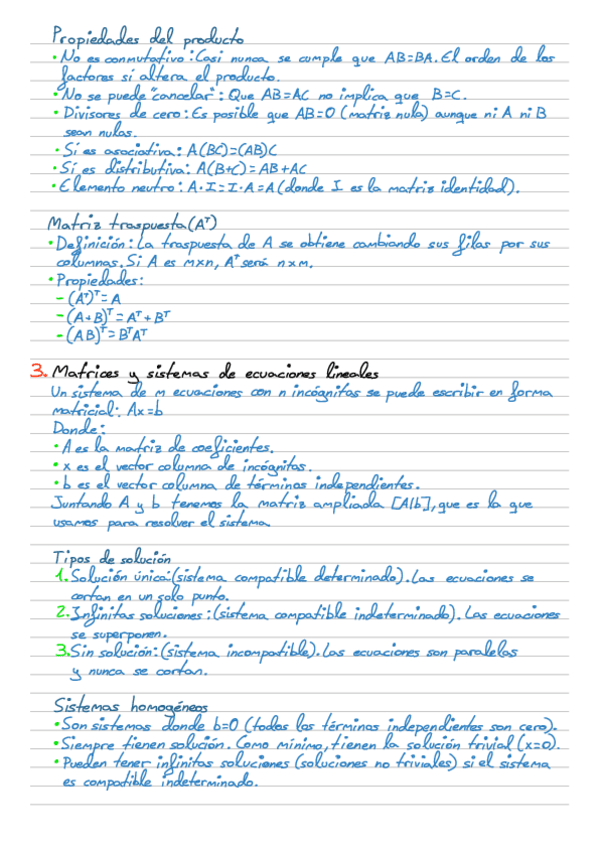 Propiedades del producto
• No es conmutativo: Casi nunca se cumple que AB=BA. El orden de los
factores sí altera el producto.
• No se puede "cancelar": Que AB=AC no implica que B=C.
• Divisores de cero: Es posible que AB=0 (matriz nula) aunque ni A ni B
sean nulas.
• Sí es asociativa: A(BC)=(AB)C
• Sí es distributiva: A(B+C)=AB+AC
• Elemento neutro: A·I=I·A=A (donde I es la matriz identidad).
Matriz traspuesta (Aᵀ)
• Definición: La traspuesta de A se obtiene cambiando sus filas por sus
columnas. Si A es m×n, Aᵀ será n×m.
• Propiedades:
- (Aᵀ)ᵀ=A
- (A+B)ᵀ=Aᵀ+Bᵀ
- (AB)ᵀ=BᵀAᵀ
3. Matrices y sistemas de ecuaciones lineales
Un sistema de m ecuaciones con n incógnitas se puede escribir en forma
matricial: Ax=b
Donde:
• A es la matriz de coeficientes.
• x es el vector columna de incógnitas.
• b es el vector columna de términos independientes.
Juntando A y b tenemos la matriz ampliada [A|b], que es la que
usamos para resolver el sistema
Tipos de solución
1. Solución única: (sistema compatible determinado). Las ecuaciones se
cortan en un solo punto.
2. Infinitas soluciones: (sistema compatible indeterminado). Las ecuaciones
se superponen.
3. Sin solución: (sistema incompatible). Las ecuaciones son paralelas
y nunca se cortan.
Sistemas homogéneos
• Son sistemas donde b=0 (todos los términos independientes son cero).
• Siempre tienen solución. Como mínimo, tienen la solución trivial (x=0).
• Pueden tener infinitas soluciones (soluciones no triviales) si el sistema
es compatible indeterminado.